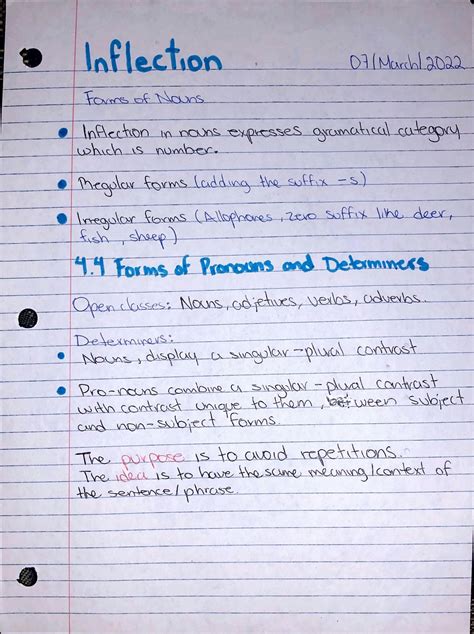 Inflection
07/March/2022
Forms of Nouns
Inflection in nouns expresses gramatical category
which is number.
Regular forms (adding the suffix -s)
Irregular forms (Allophones, zero suffix like deer,
fish, sheep)
4.4 Forms of Pronouns and Determiners
Open classes: Nouns, adjetives, verbs, adverbs.
Determiners:
Nouns, display a singular-plural contrast
Pro-nouns combine a singular-plural contrast
with contrast unique to them, between subject
and non-subject forms.
The purpose is to avoid repetitions.
The idea is to have the same meaning/context of
the sentence/phrase.